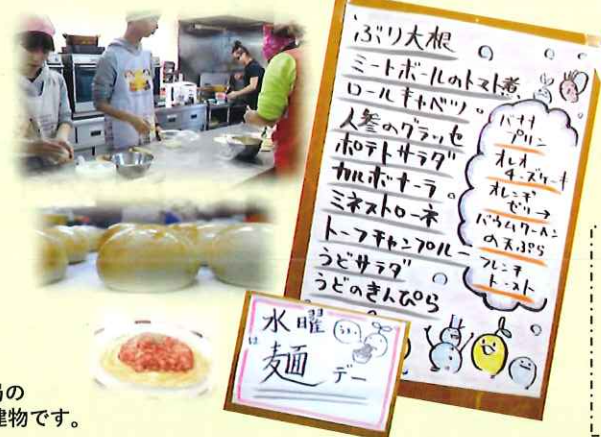 ぶり大根
ミートボールのトマト煮
ロールキャベツ
人参のグラッセ
ポテトサラダ
カルボナーラ
ミネストローネ
トーフチャンプルー
うどサラダ
うどのきんぴら
バナナ
プリン
オレオ
チーズケーキ
オレンヂ
ゼリー
バウムクーヘン
の天ぷら
フレンチ
トースト
水曜
は
麺デー
の
建物です。